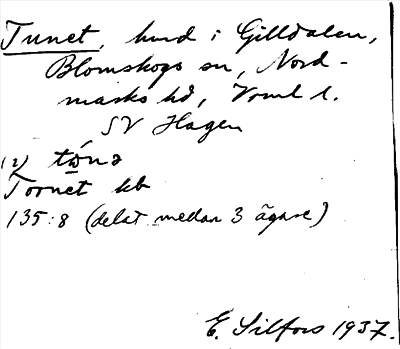 Tunet, hmd i Gilldalen,
Blomskogs sn, Nord-
marks hd, Vrml l.
SV Hagen
(2) tώnə
Toonet kb
135:8 (delat medan 3 ägare)
E. Silfors 1937.